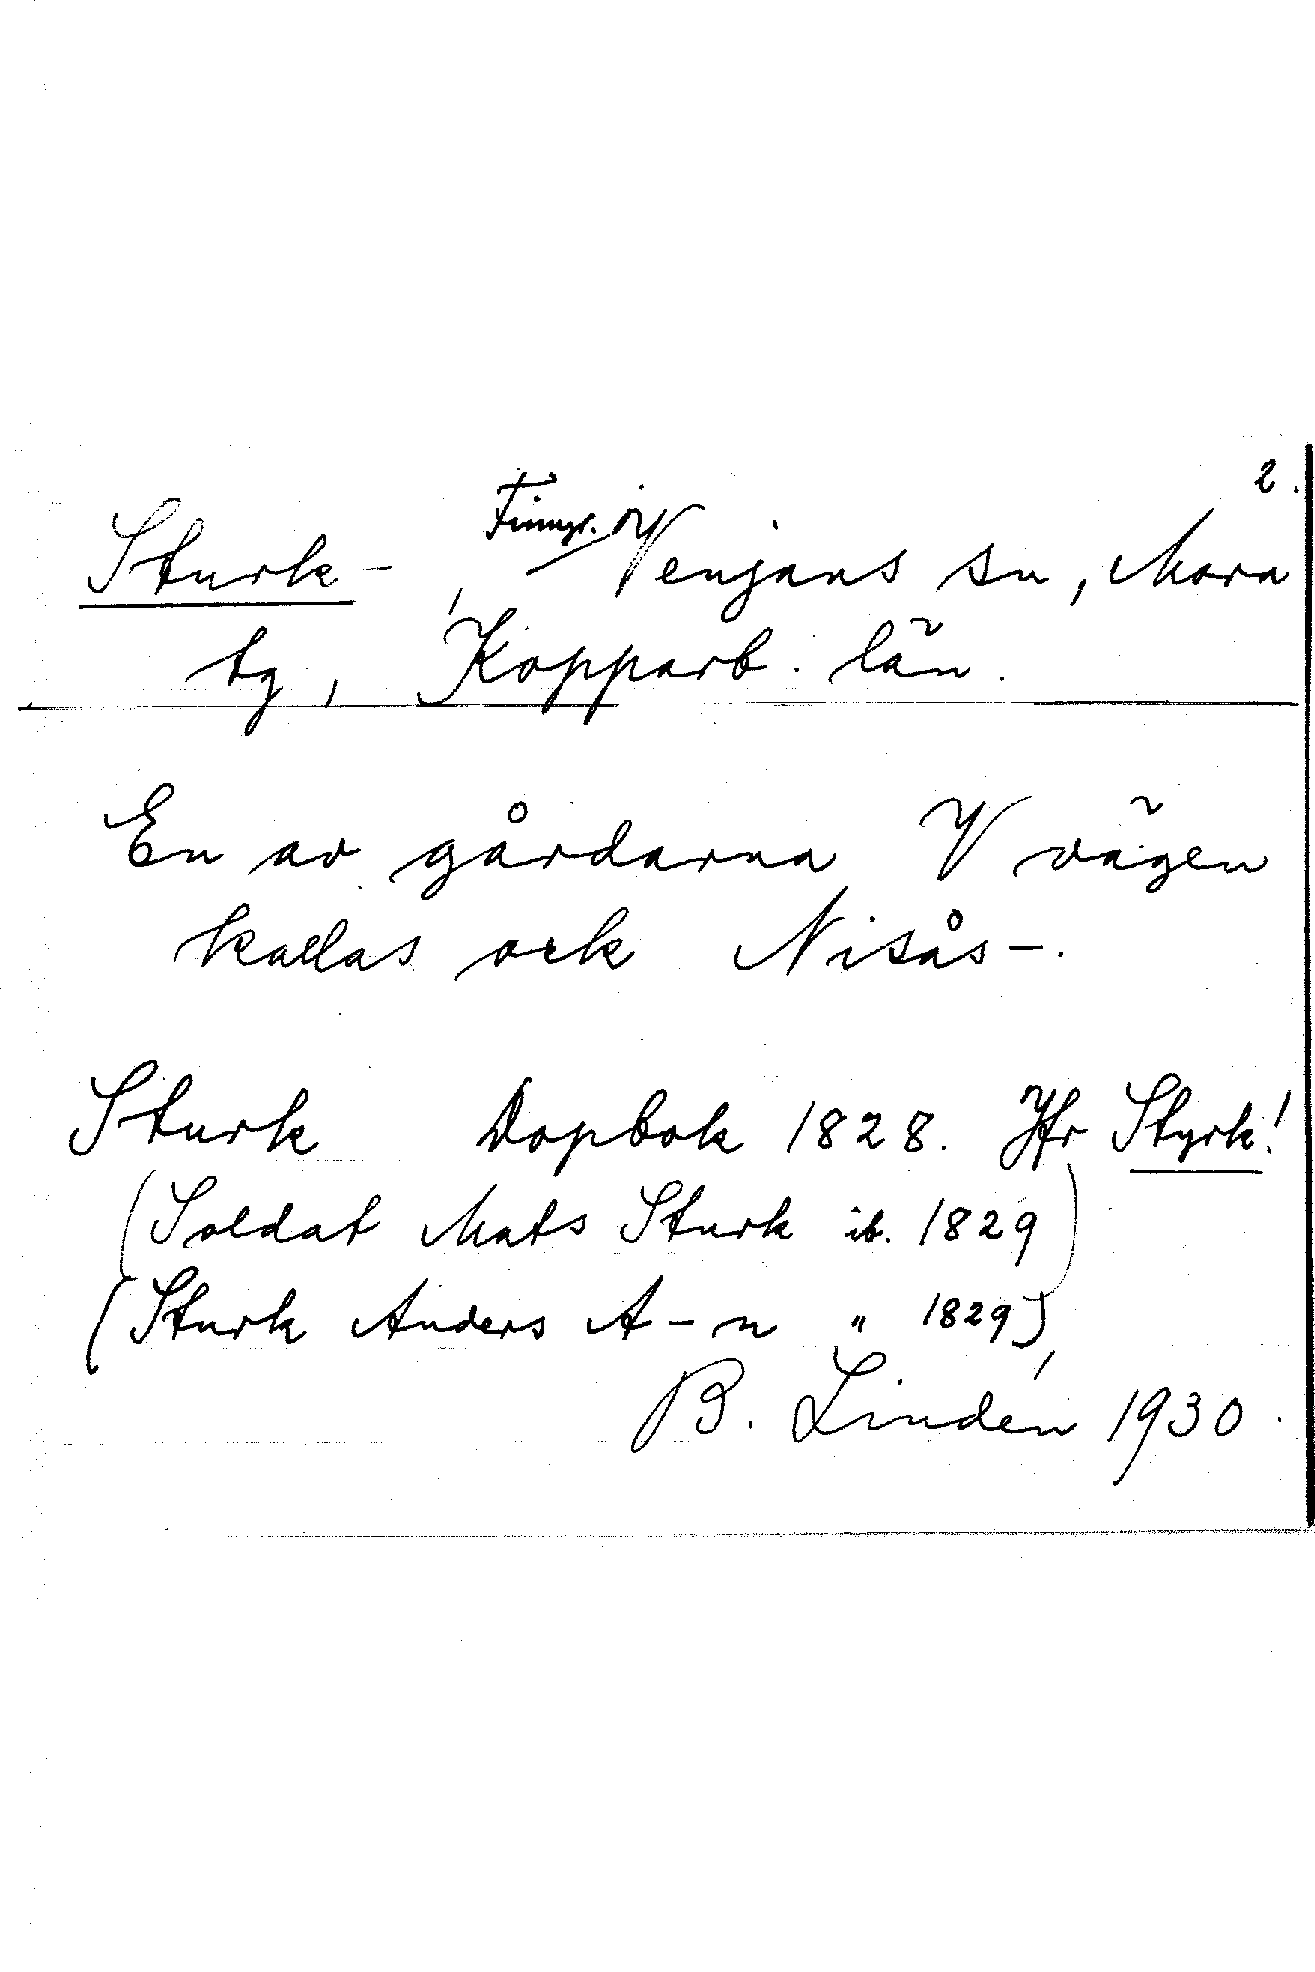 2.
Sturk-, Finngr. Venjans sn, Mora
tg, Kopparb. län.
En av gårdarna V vägen
kallas ock Nisås-.
Sturk Dopbok 1828. Jfr Styrk!
(Soldat Mats Sturk ib. 1829)
(Sturk Anders A-n " 1829)
B. Lindén 1930.